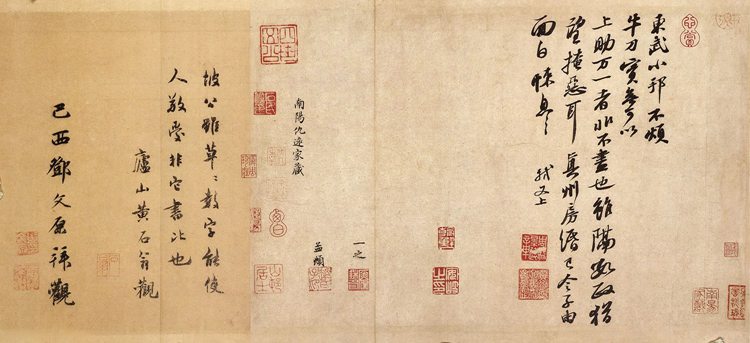 東武小邦不煩
牛刀實無可以
上助万一者非不盡也雖隔數政猶
望掩惡耳真州房緡已令子由
面白悚息〻
軾又上
一之
南陽仇遠家藏
坡公雖草〻數字能使
人敬愛非它書比也
廬山黃石翁觀
己酉鄧文原拜觀